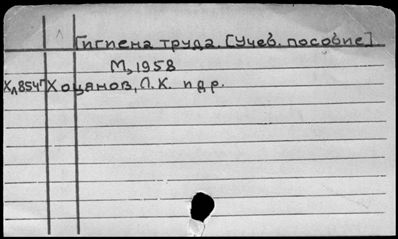 Гигиена труда. [Учеб. пособие]
М, 1958
Хоцянов, Л.К. и др.